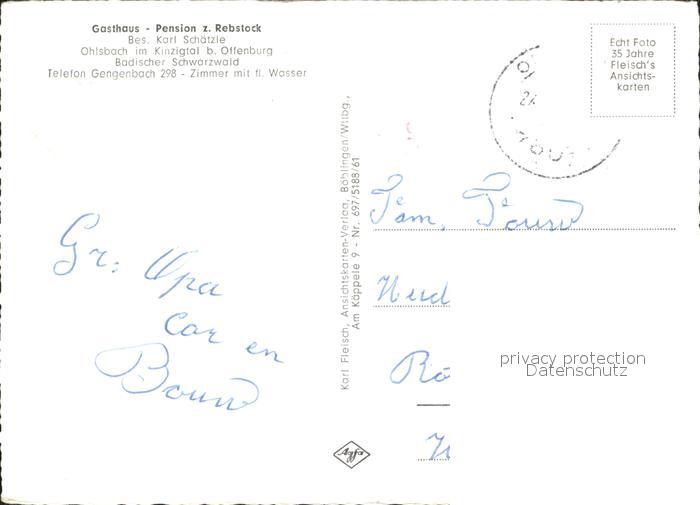 Gasthaus - Pension z. Rebstock
Bes. Karl Schätzle
Ohlsbach im Kinzigtal b. Offenburg
Badischer Schwarzwald
Telefon Gengenbach 298 - Zimmer mit fl. Wasser
Echt Foto
35 Jahre
Fleisch's
Ansichts-
karten
Karl Fleisch, Ansichtskarten-Verlag, Böblingen/Wttbg.,
Am Käppele 9 - Nr. 697/5188/61
Gr: Opa
Cor en
Bouw
Fam.
privacy protection
Datenschutz
Agfa